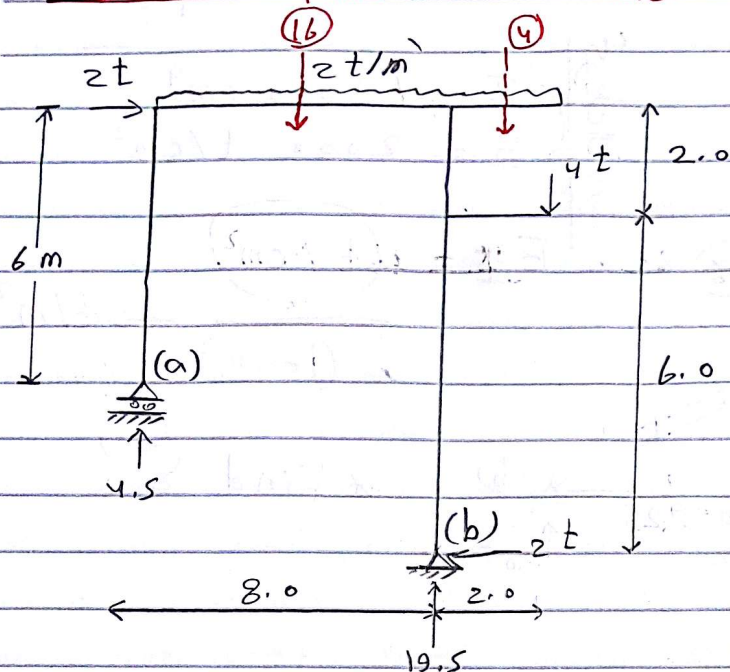 16
4
2t
2 t/m`
4 t
2.0
6 m
(a)
6.0
4.5
(b)
2 t
8.0
2.0
19.5